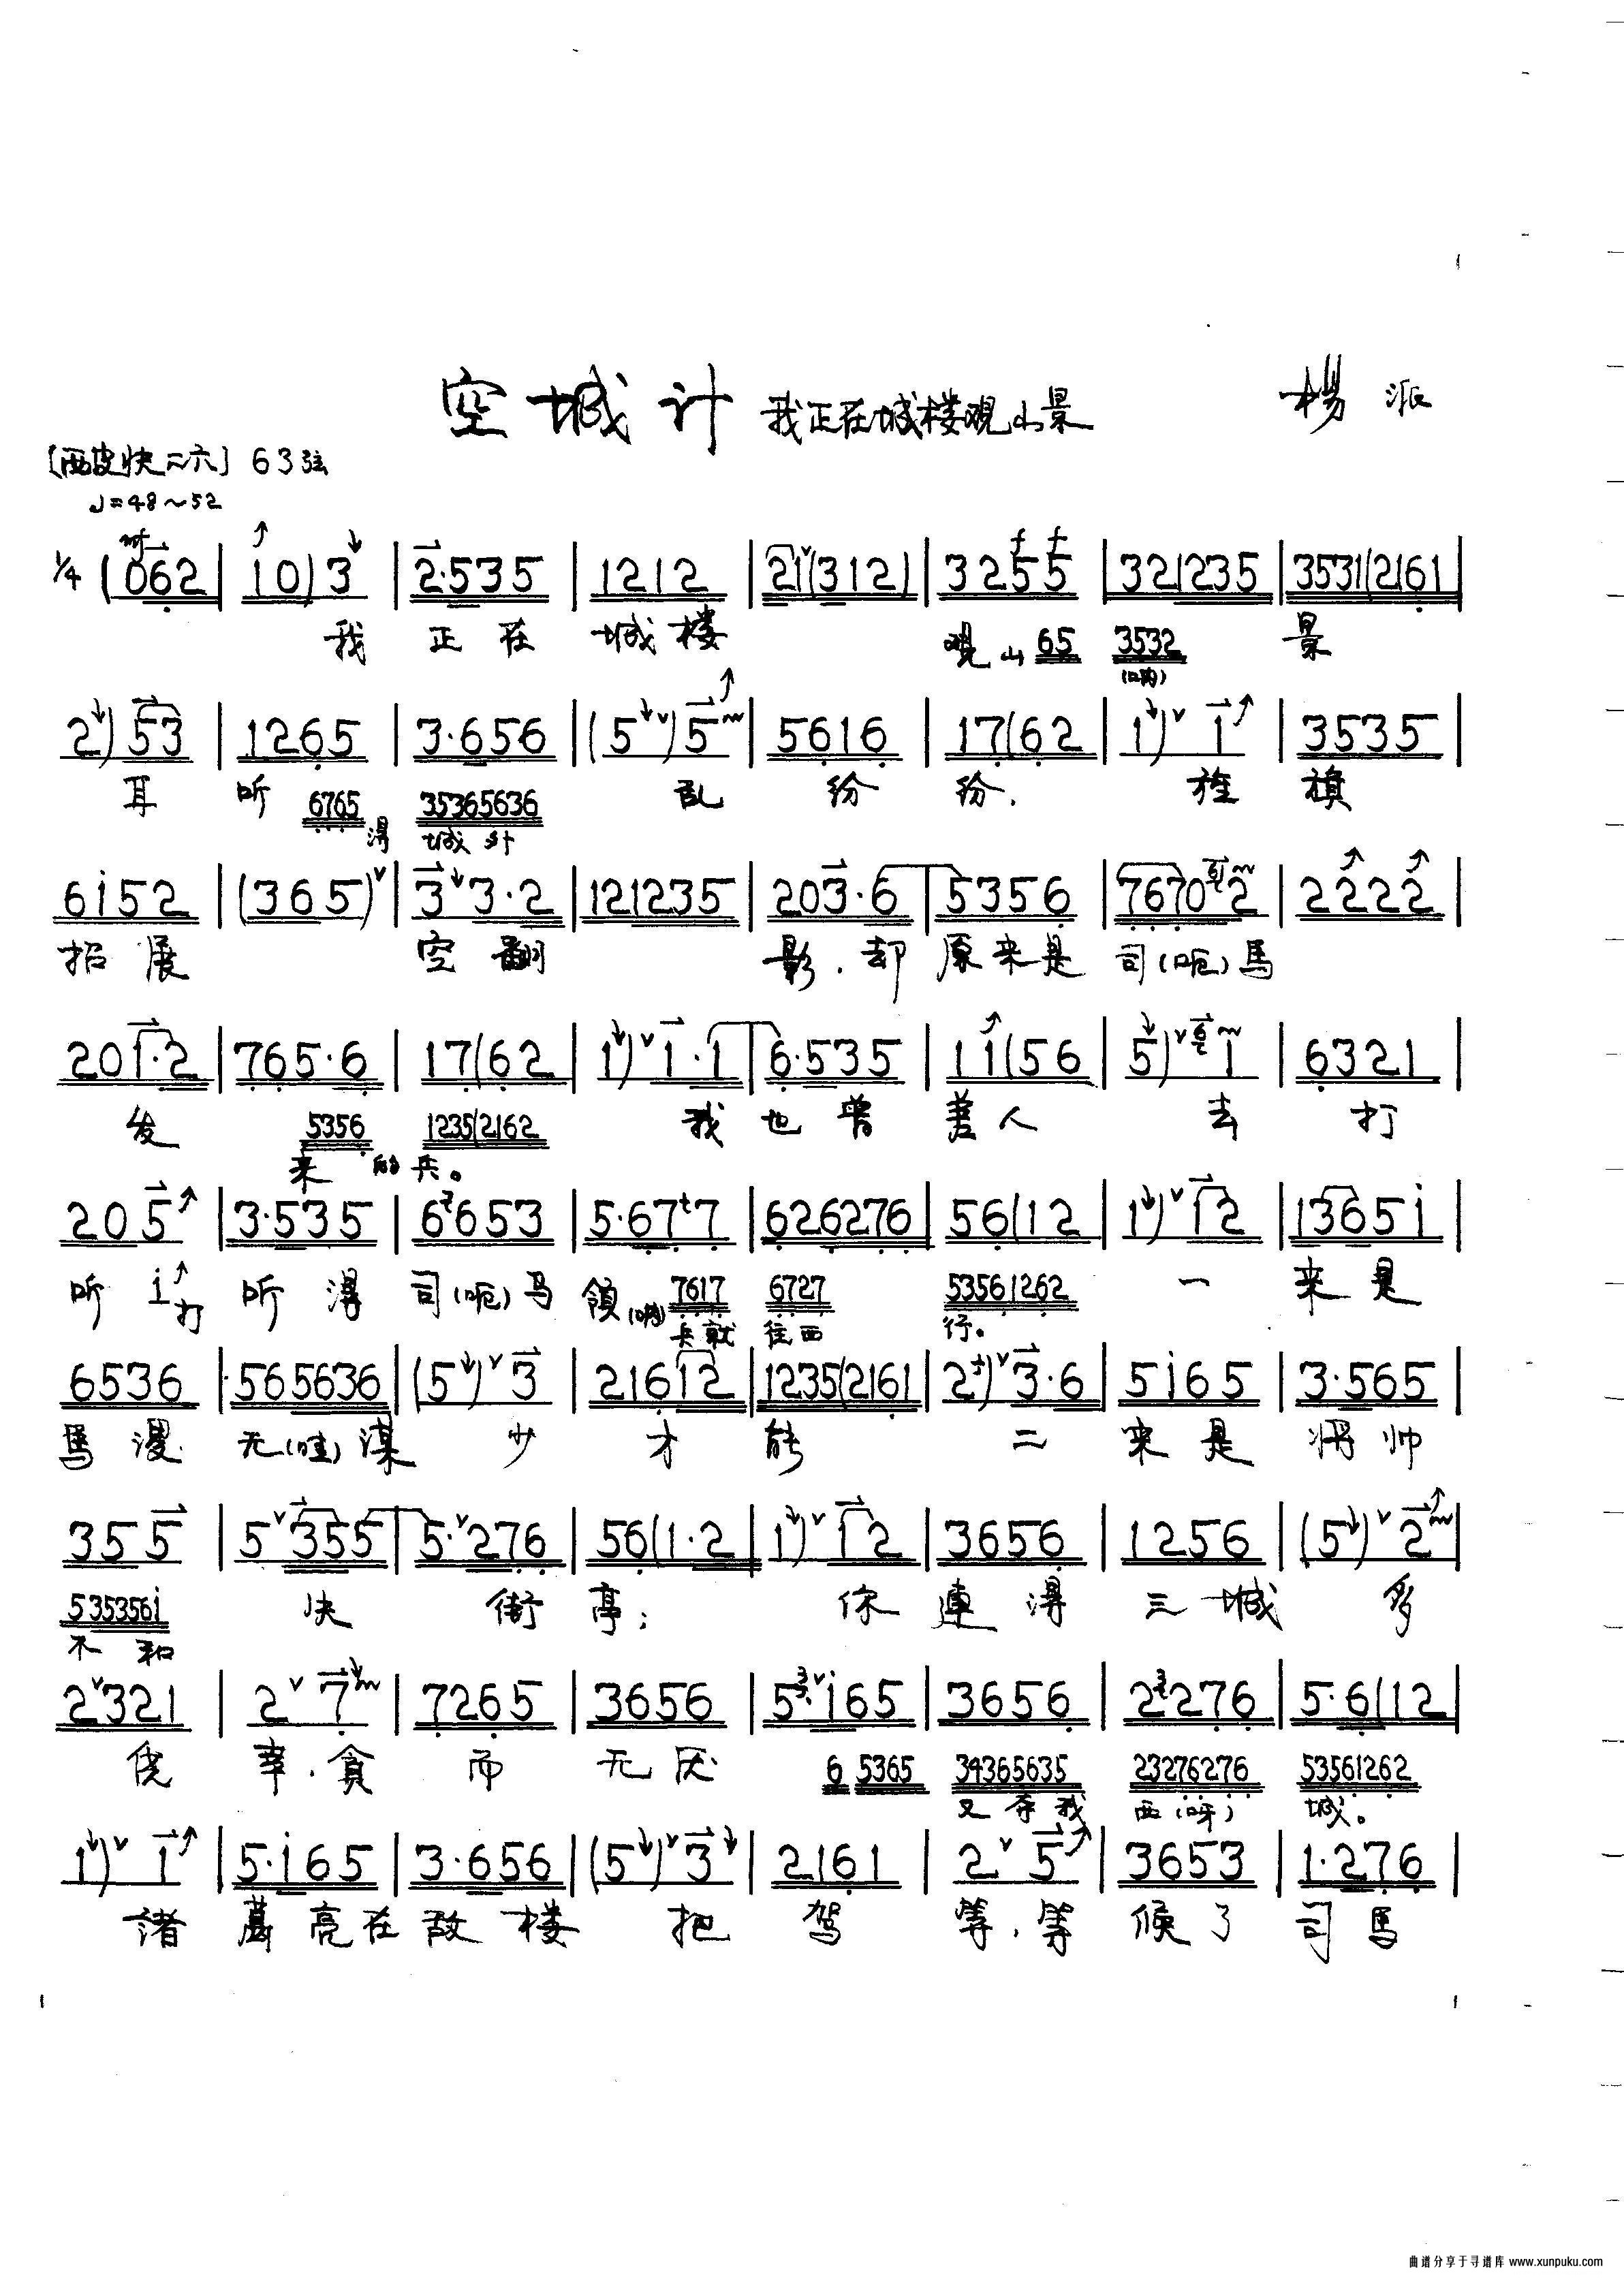 空城计 我正在城楼观山景 杨派
〔西皮快二六〕 63弦
♩=48～52
1/4 (062 | i0) 3 | 2·535 | 1212 | 21(312) | 3255 | 321235 | 3531(2161 |
我 正 在 城 楼 观 山 65 3532 景
(呐)
2) 53 | 1265 | 3·656 | (5) 5 | 5616 | 17(62 | 1) 1 | 3535 |
耳 听 6765 35365636 乱 纷 纷. 旌 旗
得 城 外
6i52 | (365) | 3 3·2 | 121235 | 203·6 | 5356 | 7670 2 | 2222 |
招 展 空 翻 影. 却 原 来 是 司(呃)馬
201·2 | 765·6 | 17(62 | 1) 1·1 | 6·535 | 1i(56 | 5) 1 | 6321 |
发 5356 1235(2162 我 也 曾 差 人 去 打
来 的 兵。
205 | 3·535 | 6653 | 5·677 | 626276 | 56(12 | 1) 12 | 1365i |
听 i 打 听 得 司(呃)马 領(呐) 7617 6727 53561262 一 来 是
兵 就 往 西 行。
6536 | 565636 | (5) 3 | 21612 | 1235(2161 | 2) 3·6 | 5i65 | 3·565 |
馬 谡 无(哇)谋 少 才 能 二 来 是 将 帅
355 | 5 355 | 5·276 | 56(1·2 | 1) 12 | 3656 | 1256 | (5) 2 |
535356i 快 街 亭; 你 連 得 三 城 多
不 和
2321 | 2 7 | 7265 | 3656 | 5 i65 | 3656 | 2276 | 5·6(12 |
侥 幸. 貪 而 无 厌 6 5365 34365635 23276276 53561262
又 夺 我 西(呀) 城。
1) 1 | 5·i65 | 3·656 | (5) 3 | 2161 | 2 5 | 3653 | 1·276 |
诸 葛 亮 在 敌 楼 把 驾 等. 等 候 了 司 馬
曲谱分享于寻谱库 www.xunpuku.com